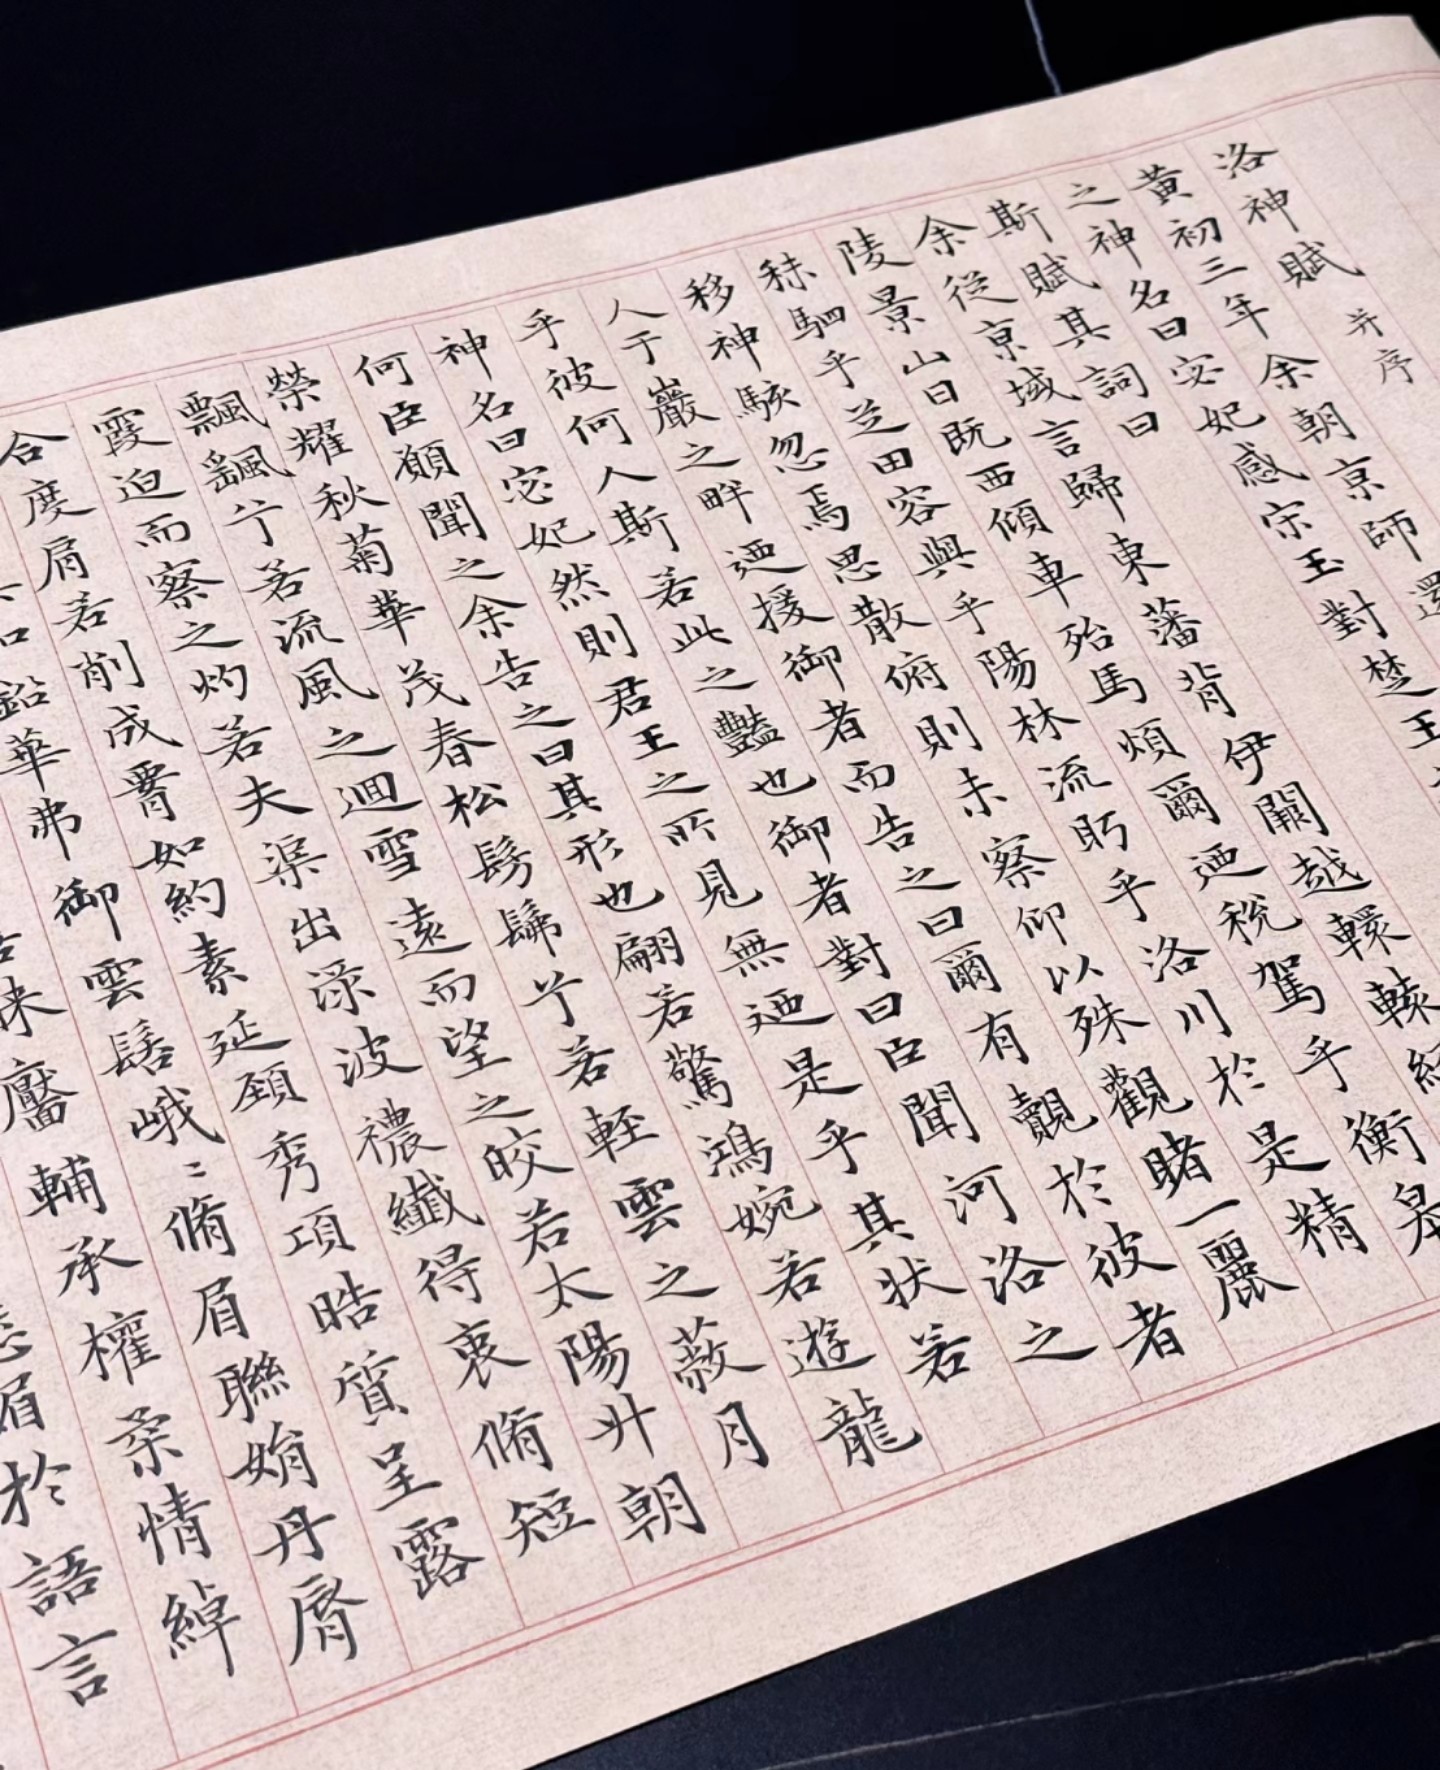 洛神賦 并序
黃初三年余朝京師還
之神名曰宓妃感宋玉對楚王
斯賦其詞曰
余從京域言歸東藩背伊闕越轘轅經
陵景山日既西傾車殆馬煩爾迺稅駕乎衡皋
秣駟乎芝田容與乎陽林流眄乎洛川於是精
移神駭忽焉思散俯則未察仰以殊觀睹一麗
人于巖之畔迺援御者而告之曰爾有覿於彼者
乎彼何人斯若此之豔也御者對曰臣聞河洛之
神名曰宓妃然則君王之所見無迺是乎其狀若
何臣願聞之余告之曰其形也翩若驚鴻婉若遊龍
榮耀秋菊華茂春松髣髴兮若輕雲之蔽月
飄颻兮若流風之迴雪遠而望之皎若太陽升朝
霞迫而察之灼若夫渠出淥波襛纖得衷脩短
合度肩若削成腰如約素延頸秀項皓質呈露
鉛華弗御雲髻峨〻脩眉聯娟丹脣
靨輔承權柔情綽
於語言